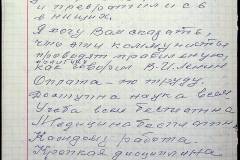 и превратились
в нищих.
Я могу Вам сказать,
что эти коммунисты
проводят правильную,
политику
как говорил В.И. Ленин
Оплата по труду.
Доступна наука всем
Учеба всем бесплатна
Медицина бесплатн
Каждому работа.
Крепкая дисциплина